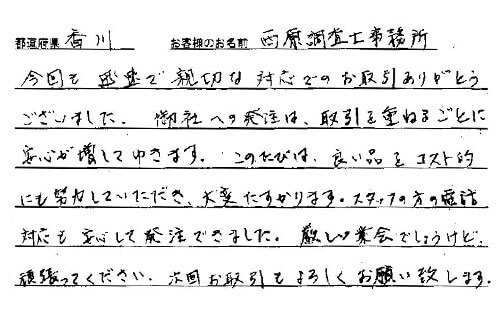 都道府県 香川 お客様のお名前 西原調査士事務所
今回も迅速で親切な対応でのお取引ありがとう
ございました. 御社への発注は、取引を重ねるごとに
安心が増してゆきます. このたびは、良い品をコスト的
にも努力していただき、大変たすかります。スタッフの方の電話
対応も安心して発注できました。厳しい業会でしょうけど、
頑張ってください. 次回お取引もよろしくお願い致します.